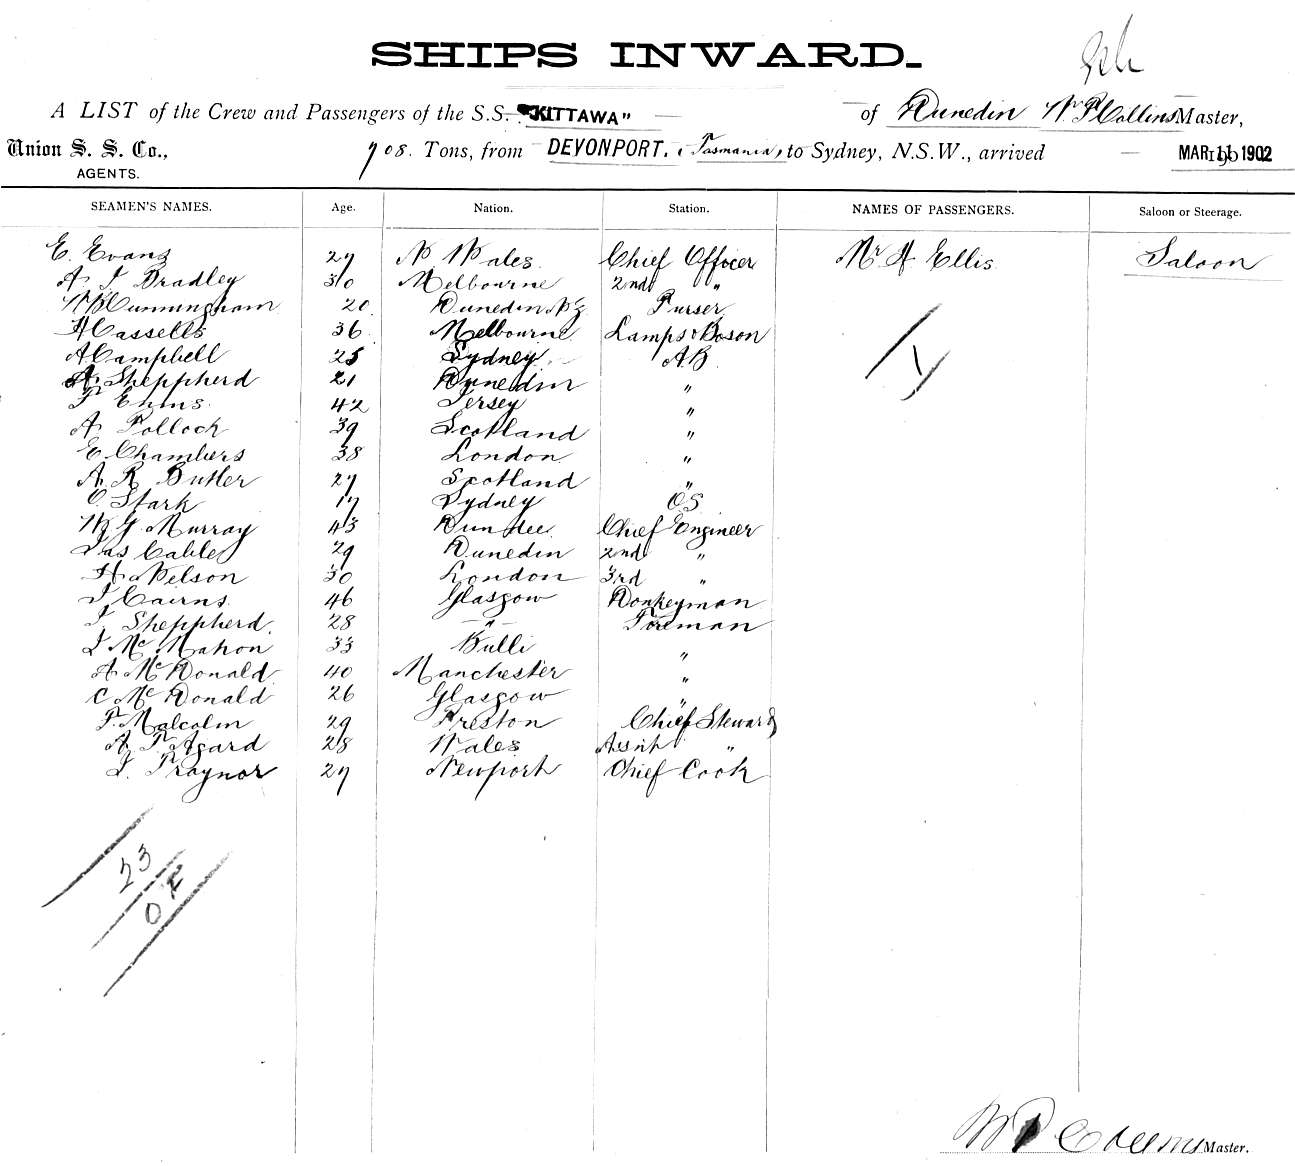 SHIPS INWARD.
A LIST of the Crew and Passengers of the S.S. "KITTAWA" of Dunedin W. P. Collins Master,
Union S. S. Co., 908. Tons, from DEVONPORT. Tasmania, to Sydney, N.S.W., arrived MAR 11 1902
AGENTS.
SEAMEN'S NAMES. Age. Nation. Station. NAMES OF PASSENGERS. Saloon or Steerage.
E. Evans 27 N Wales Chief Officer Mr H Ellis Saloon
A J Bradley 30 Melbourne 2nd "
W B Cunningham 20 Dunedin NZ Purser
H Cassells 36 Melbourne Lamps & Boson
A Campbell 25 Sydney AB
A Sheppherd 21 Dunedin "
F Enms 42 Jersey "
A Pollock 39 Scotland "
E Chambers 38 London "
A R Butler 27 Scotland "
C Stark 17 Sydney OS
W G Murray 43 Dundee Chief Engineer
Jas Cable 29 Dunedin 2nd "
H Nelson 30 London 3rd "
J Cairns 46 Glasgow Donkeyman
J. Sheppherd 28 " Fireman
J Mc Mahon 33 Bulli "
A Mc Donald 40 Manchester "
C Mc Donald 26 Glasgow "
F. Malcolm 29 Preston Chief Steward
A F Agard 28 Wales Assnt "
J. Traynor 27 Newport Chief Cook
23
W P Collins Master.